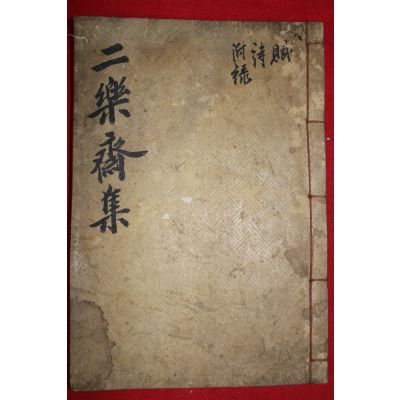 二樂齋集
賦
詩
附錄